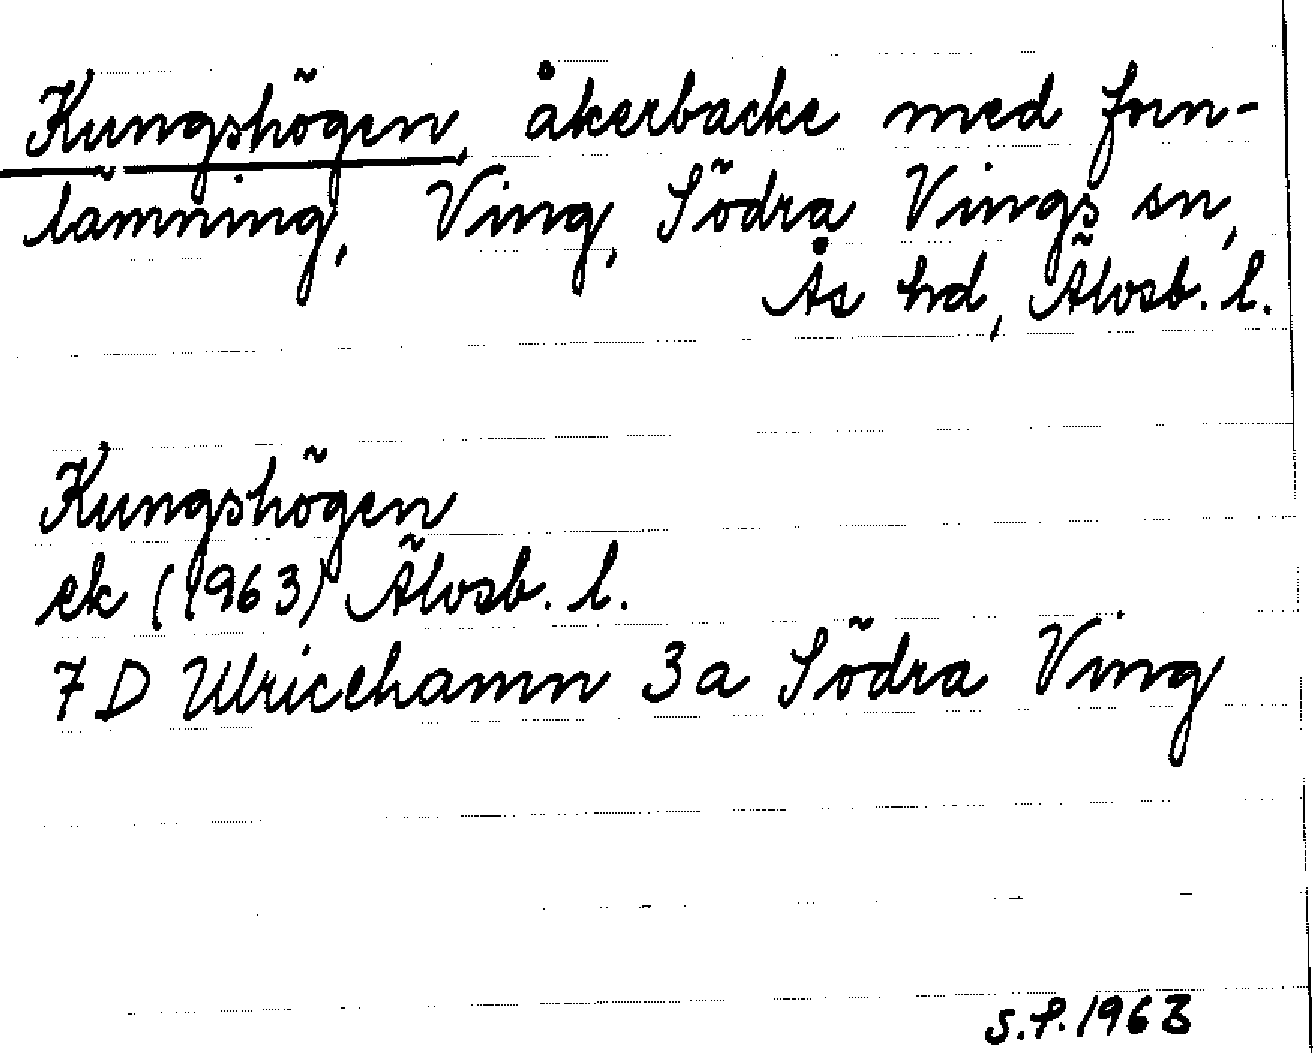 Kungshögen, åkerbacke med forn-
lämning, Ving, Södra Vings sn,
Ås hd, Älvsb. l.
Kungshögen
ek (1963) Älvsb. l.
7 D Ulricehamn 3a Södra Ving
S.P. 1963